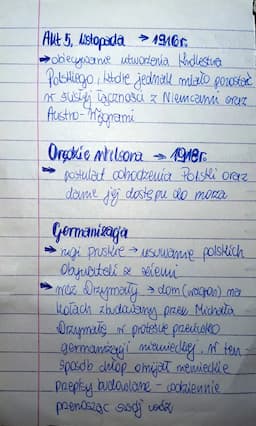 Akt 5, listopada → 1916r.
→ obiecywanie utworzenia Królestwa
Polskiego, które jednak miało pozostać
w ścisłej łączności z Niemcami oraz
Austro-Węgrami
Orędzie Wilsona → 1918r.
→ postulat odrodzenia Polski oraz
danie jej dostępu do morza
Germanizacja
→ rugi pruskie → usuwanie polskich
obywateli z ziemi
→ wóz Drzymały → dom (wagon) na
kołach zbudowany przez Michała
Drzymałę w proteście przeciwko
germanizacji niemieckiej, w ten
sposób chłop omijał niemieckie
przepisy budowlane - codziennie
przenosząc swój wóz